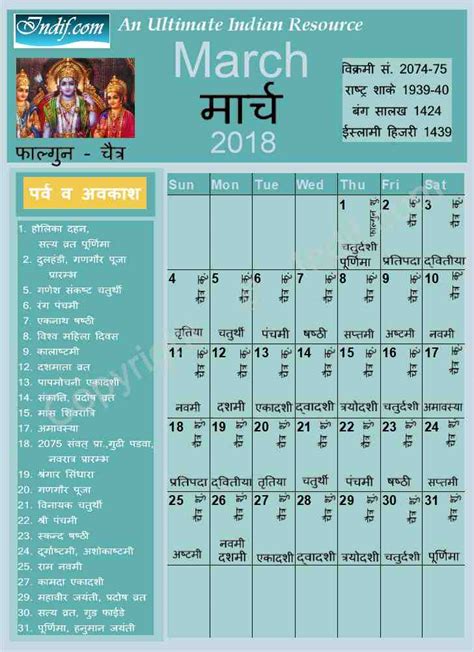 Indif.com An Ultimate Indian Resource
March
मार्च
2018
विक्रमी सं. 2074-75
राष्ट्र शाके 1939-40
बंग सालख 1424
ईस्लामी हिजरी 1439
फाल्गुन - चैत्र
पर्व व अवकाश
1. होलिका दहन,
सत्य व्रत पूर्णिमा
2. दुलहंडी, गणगौर पूजा
प्रारम्भ
5. गणेश संकष्ट चतुर्थी
6. रंग पंचमी
7. एकनाथ षष्ठी
8. विश्व महिला दिवस
9. कालाष्टमी
12. दशमाता व्रत
13. पापमोचनी एकादशी
14. संक्राति, प्रदोष व्रत
15. मास शिवरात्रि
17. अमावस्या
18. 2075 संवत् प्रा.,गुढी पडवा,
नवरात्र प्रारम्भ
19. श्रंगार सिंधारा
20. गणगौर पूजा
21. विनायक चतुर्थी
22. श्री पंचमी
23. स्कन्द षष्ठी
24. दुर्गाष्टमी, अशोकाष्टमी
25. राम नवमी
27. कामदा एकादशी
29. महावीर जयंती, प्रदोष व्रत
30. सत्य व्रत, गुड फ्राईडे
31. पूर्णिमा, हनुमान जयंती
Sun Mon Tue Wed Thu Fri Sat
1 फाल्गुन शु. 2 चैत्र कृ. 3 चैत्र कृ.
चतुदर्शी पूर्णिमा प्रतिपदा द्वितीया
4 चैत्र कृ. 5 चैत्र कृ. 6 चैत्र कृ. 7 चैत्र कृ. 8 चैत्र कृ. 9 चैत्र कृ. 10 चैत्र कृ.
तृतिया चतुर्थी पंचमी षष्ठी सप्तमी अष्टमी नवमी
11 चैत्र कृ. 12 चैत्र कृ. 13 चैत्र कृ. 14 चैत्र कृ. 15 चैत्र कृ. 16 चैत्र कृ. 17 चैत्र कृ.
नवमी दशमी एकादशी द्वादशी त्रयोदशी चतुर्दशी अमावस्या
18 चैत्र शु. 19 चैत्र शु. 20 चैत्र शु. 21 चैत्र शु. 22 चैत्र शु. 23 चैत्र शु. 24 चैत्र शु.
प्रतिपदा द्वितीया तृतीया चतुर्थी पंचमी षष्ठी सप्तमी
25 चैत्र शु. 26 चैत्र शु. 27 चैत्र शु. 28 चैत्र शु. 29 चैत्र शु. 30 चैत्र शु. 31 चैत्र शु.
अष्टमी नवमी दशमी एकादशी द्वादशी त्रयोदशी चतुर्दशी पूर्णिमा